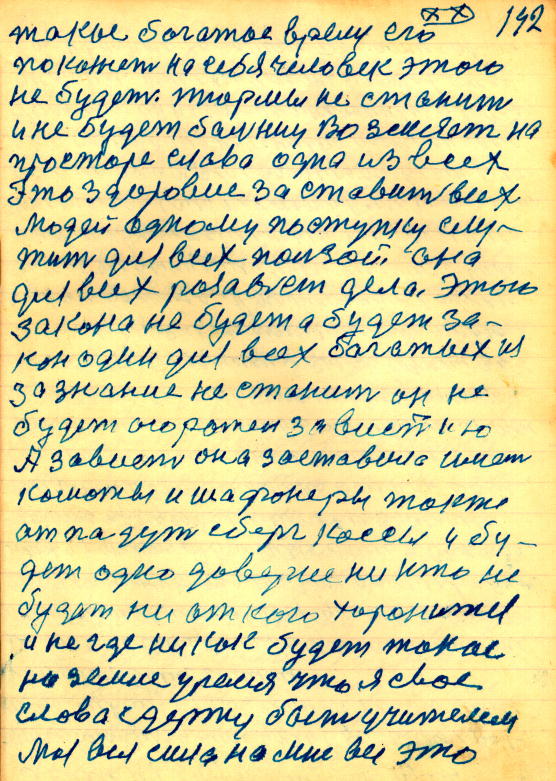 хх 142
такое богатое время его
покажет на себя человек этого
не будет. тюрмы не станит
и не будет болниц возсияет на
просторе слава одна из всех
Это здоровие заставит всех
людей одному поступку слу-
жит для всех ползой она
для всех розавьет дела. Этого
закона не будет а будет за-
кон один для всех богатых из
за знание не станит он не
будет огорожен завистию
А завист она заставила имет
комоты и шафонеры также
отпадут сберг кассы и бу-
дет одно доверие ни кто не
будет ни от кого хоронится
и не где ни как будет такое
на земле уремя что я свое
слова сдержу быт учителем
Мы вся сила на мне все это